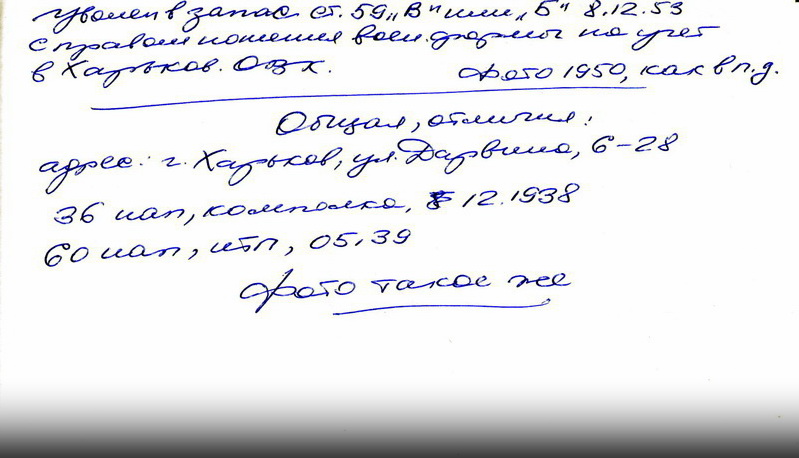 Уволен в запас ст. 59 „В" или „Б" 8.12.53
с правом ношения воен. формы на учет
в Харьков. ОВК.
Фото 1950, как в п.д.
Общая, отличия:
адрес: г. Харьков, ул. Дарвина, 6-28
36 иап, комполка, 12.1938
60 иап, итп, 05.39
Фото такое же